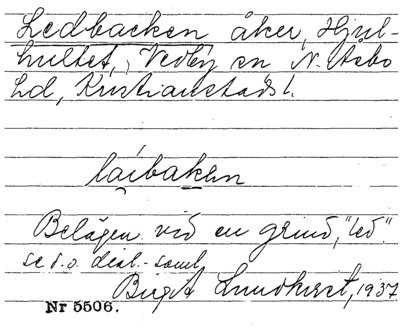 Ledbacken åker, Hjul-
hultet, Vedby sn N. Åsbo
hd, Kristianstads l.
laibaken
Belägen vid en grind, "led".
se d.o. dial.-saml
Birgit Lundkvist, 1937
Nr 5506.